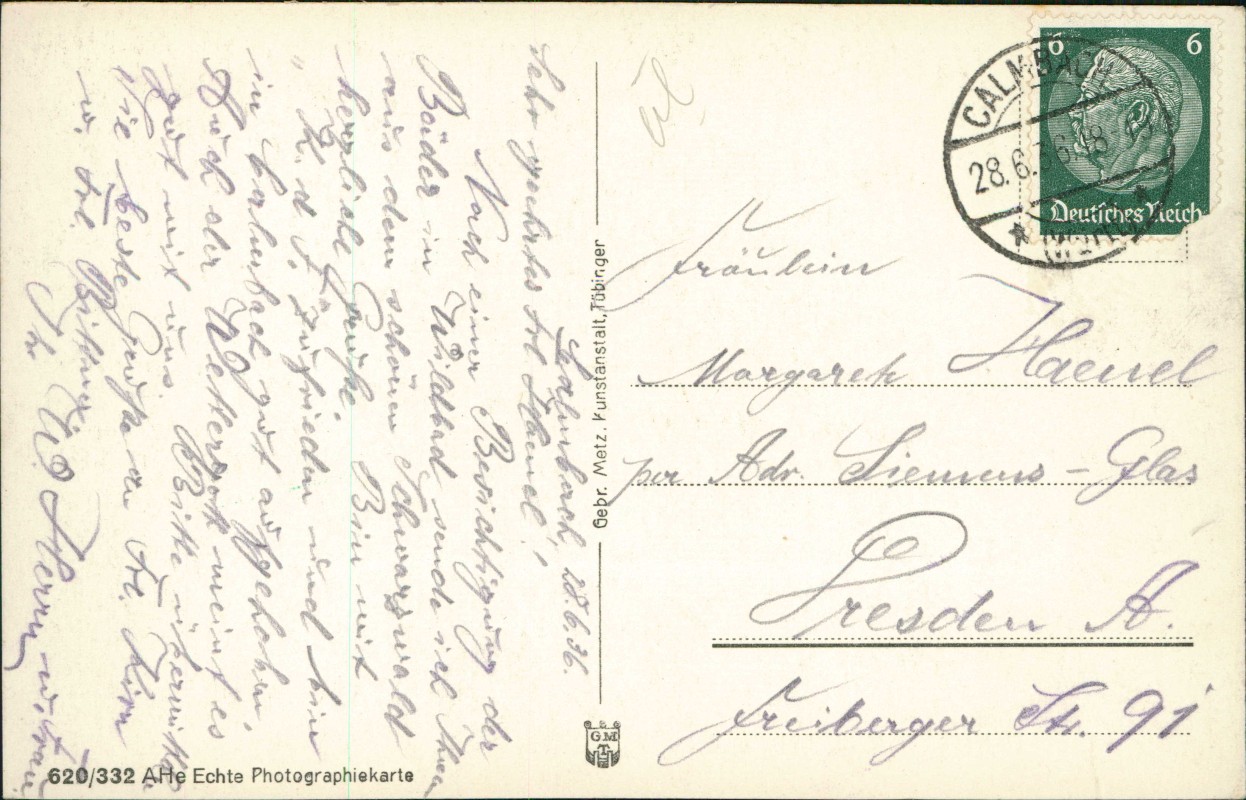 Calmbach, 28.6.36.
Sehr geehrtes Frl. Haenel!
Nach einer Besichtigung der
Bäder in Wildbad sende ich Ihnen
aus dem schönen Schwarzwald
herzliche Grüße. Bin mit
K.d.F. zufrieden und bin
in Calmbach gut aufgehoben.
Auch der Wettergott meint es
gut mit uns. Bitte übermitteln
Sie beste Grüße an Frl.
u. Frl. Büttner.
Ihr
u. Frau
Gebr. Metz, Kunstanstalt, Tübingen
GMT
620/332 AHe Echte Photographiekarte
6
6
Deutsches Reich
CALMBACH
28.6.36.18
(WÜRTT)
Fräulein
Margarete Haenel
per Adr. Siemens - Glas
Dresden A.
Freiberger Str. 91